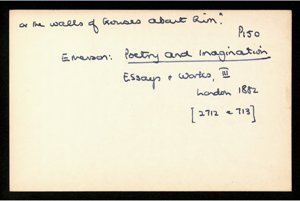 or the walls of houses about him."
P150
Emerson: Poetry and Imagination
Essays & Works, III
London 1882
[2712 e 713]